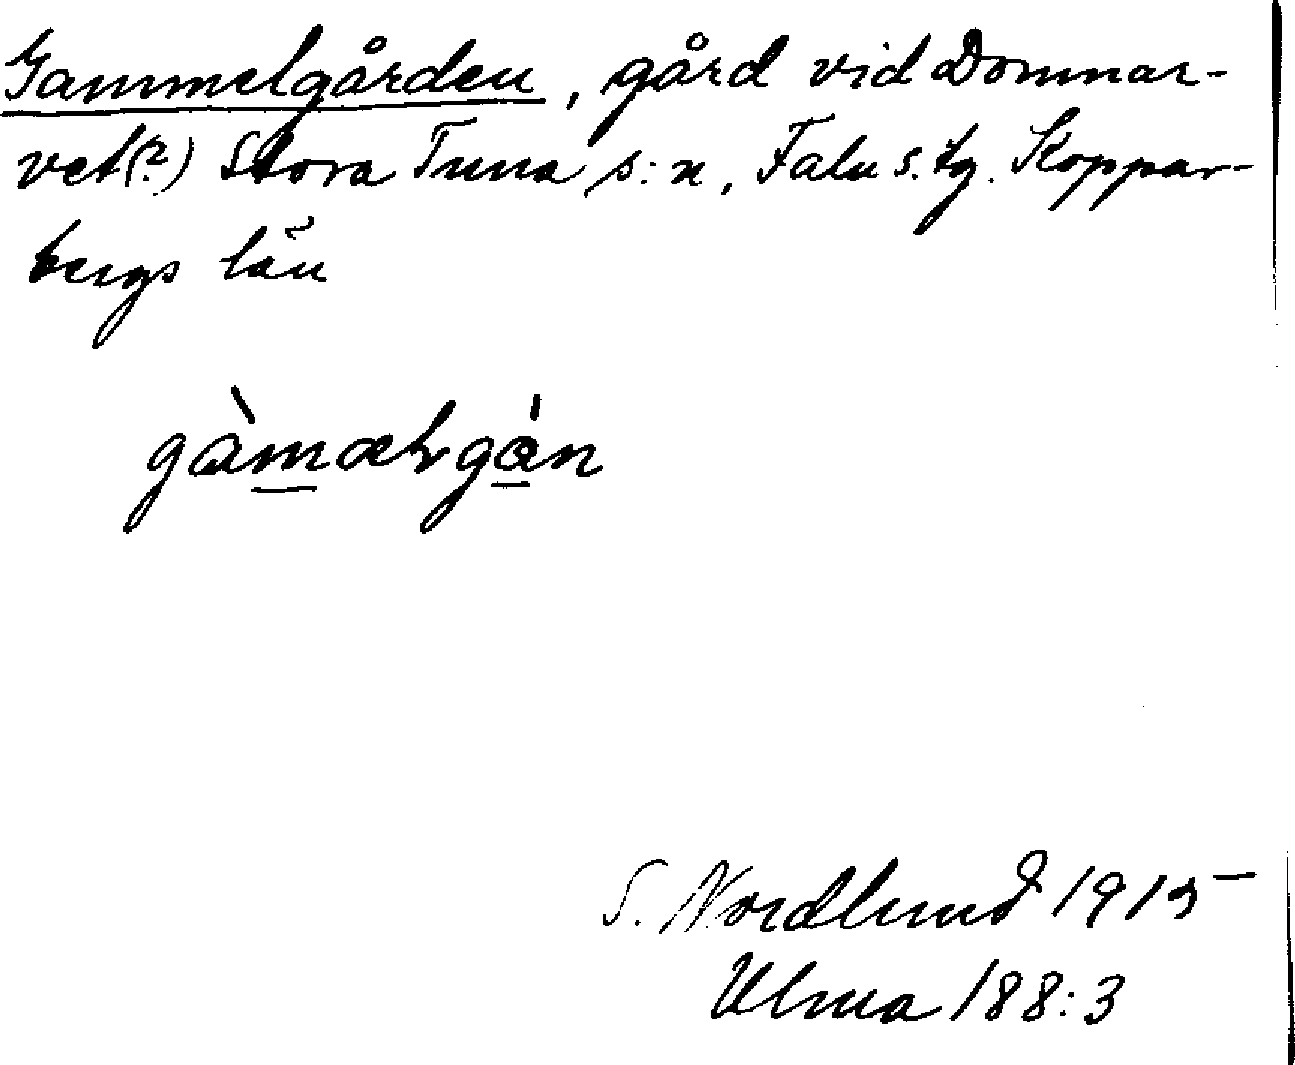 Gammelgården, gård vid Domnar-
vet(?) Stora Tuna s:n, Falu s. tg. Koppar-
bergs län
gàmælgån
S. Nordlund 1915
Ulma 188:3